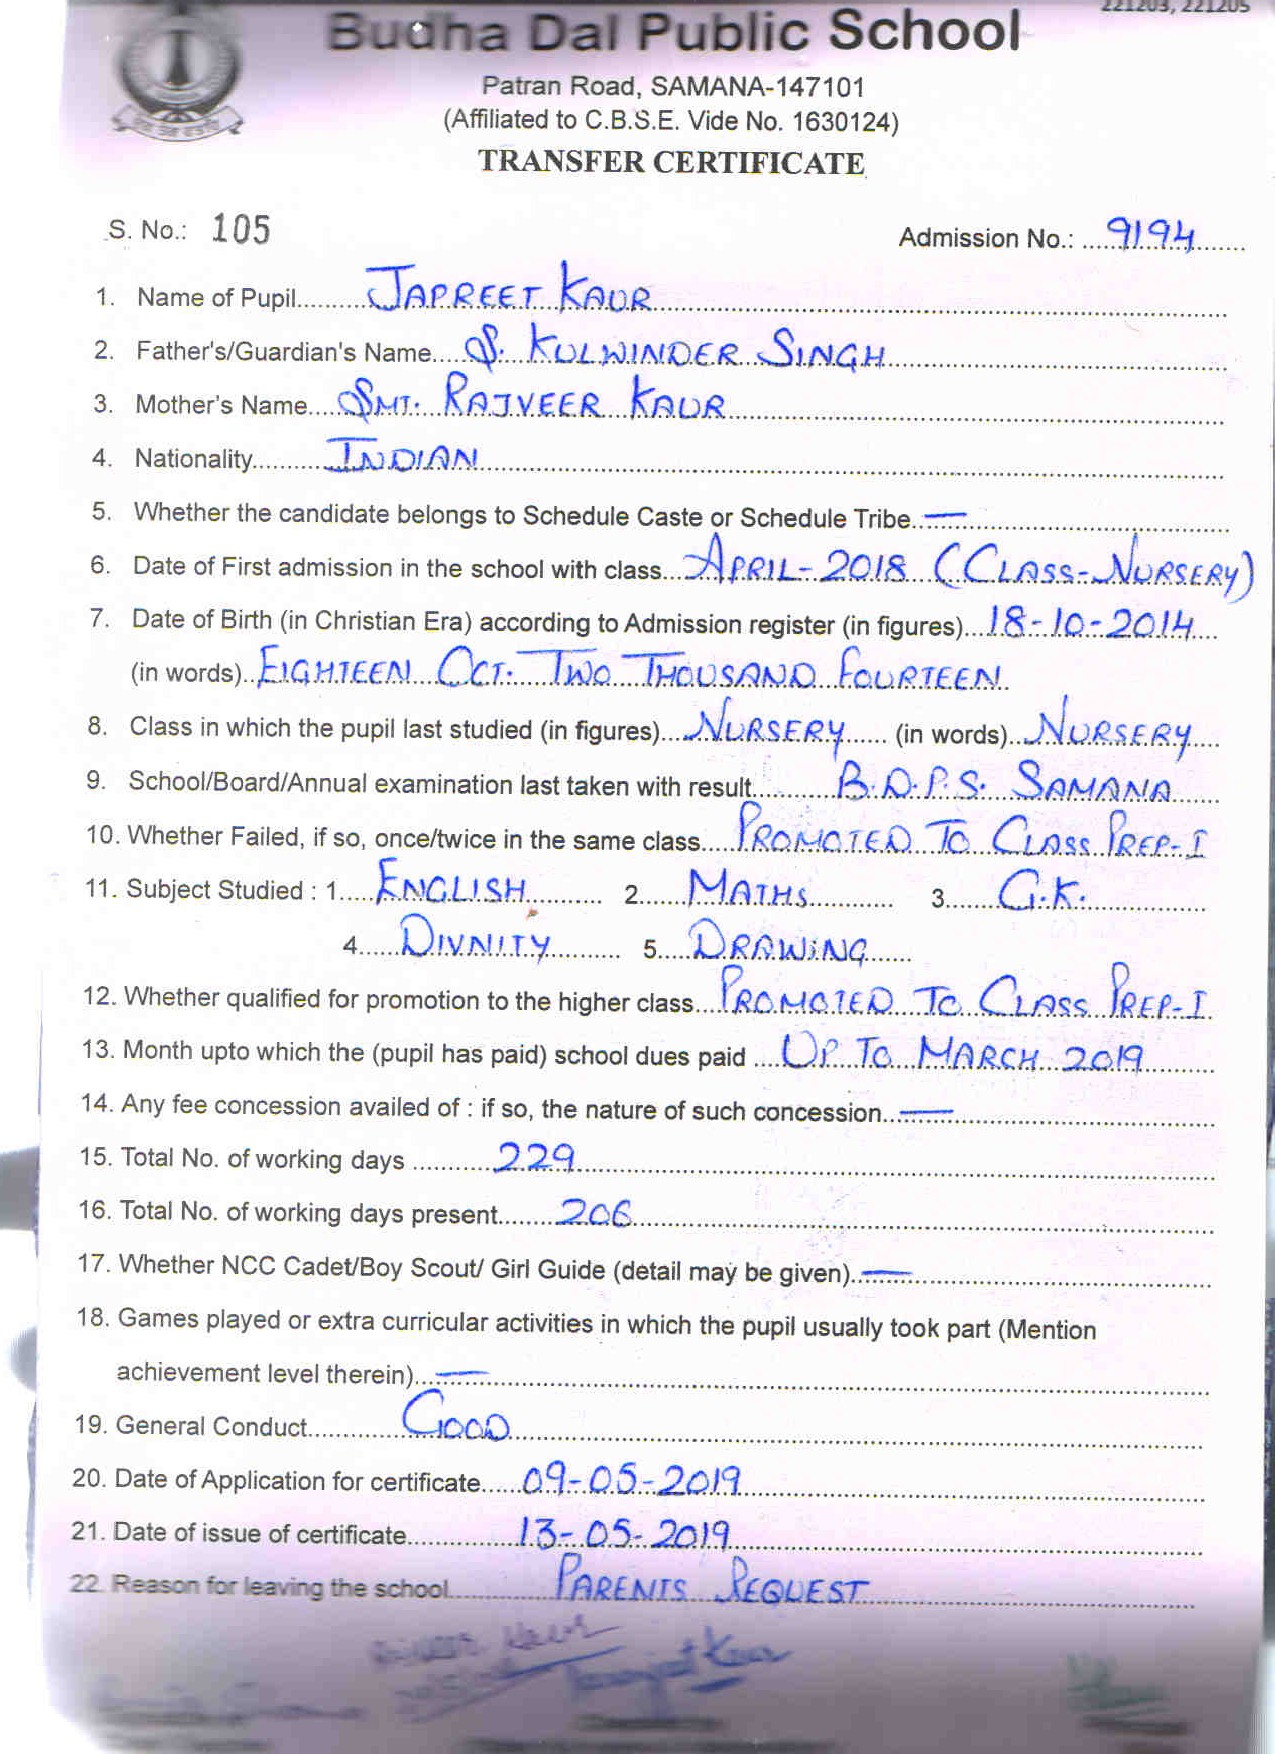 221203, 221205
Budha Dal Public School
Patran Road, SAMANA-147101
(Affiliated to C.B.S.E. Vide No. 1630124)
TRANSFER CERTIFICATE
S. No.: 105 Admission No.: 9194
1. Name of Pupil JAPREET KAUR
2. Father's/Guardian's Name S. KULWINDER SINGH
3. Mother's Name SMT. RAJVEER KAUR
4. Nationality INDIAN
5. Whether the candidate belongs to Schedule Caste or Schedule Tribe —
6. Date of First admission in the school with class APRIL-2018 (CLASS-NURSERY)
7. Date of Birth (in Christian Era) according to Admission register (in figures) 18-10-2014
(in words) EIGHTEEN OCT. TWO THOUSAND FOURTEEN
8. Class in which the pupil last studied (in figures) NURSERY (in words) NURSERY
9. School/Board/Annual examination last taken with result B.D.P.S. SAMANA
10. Whether Failed, if so, once/twice in the same class PROMOTED TO CLASS PREP-I
11. Subject Studied : 1 ENGLISH 2 MATHS 3 G.K.
4 DIVNITY 5 DRAWING
12. Whether qualified for promotion to the higher class PROMOTED TO CLASS PREP-I
13. Month upto which the (pupil has paid) school dues paid UP TO MARCH 2019
14. Any fee concession availed of : if so, the nature of such concession —
15. Total No. of working days 229
16. Total No. of working days present 206
17. Whether NCC Cadet/Boy Scout/ Girl Guide (detail may be given) —
18. Games played or extra curricular activities in which the pupil usually took part (Mention
achievement level therein) —
19. General Conduct GOOD
20. Date of Application for certificate 09-05-2019
21. Date of issue of certificate 13-05-2019
22. Reason for leaving the school PARENTS REQUEST
Kaur
Kaur